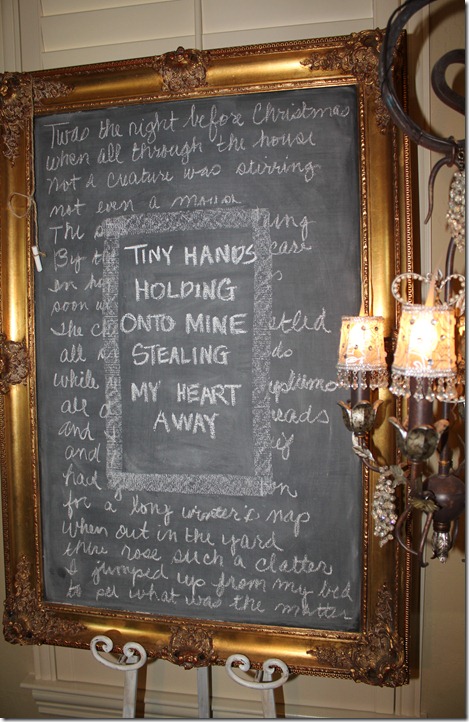 Twas the night before Christmas
when all through the house
not a creature was stirring
not even a mouse
The
By care
In
soon
The
all
while
all
and
and
had
for a long winter's nap
When out in the yard
there rose such a clatter
I jumped up from my bed
to see what was the matter
TINY HANDS
HOLDING
ONTO MINE
STEALING
MY HEART
AWAY